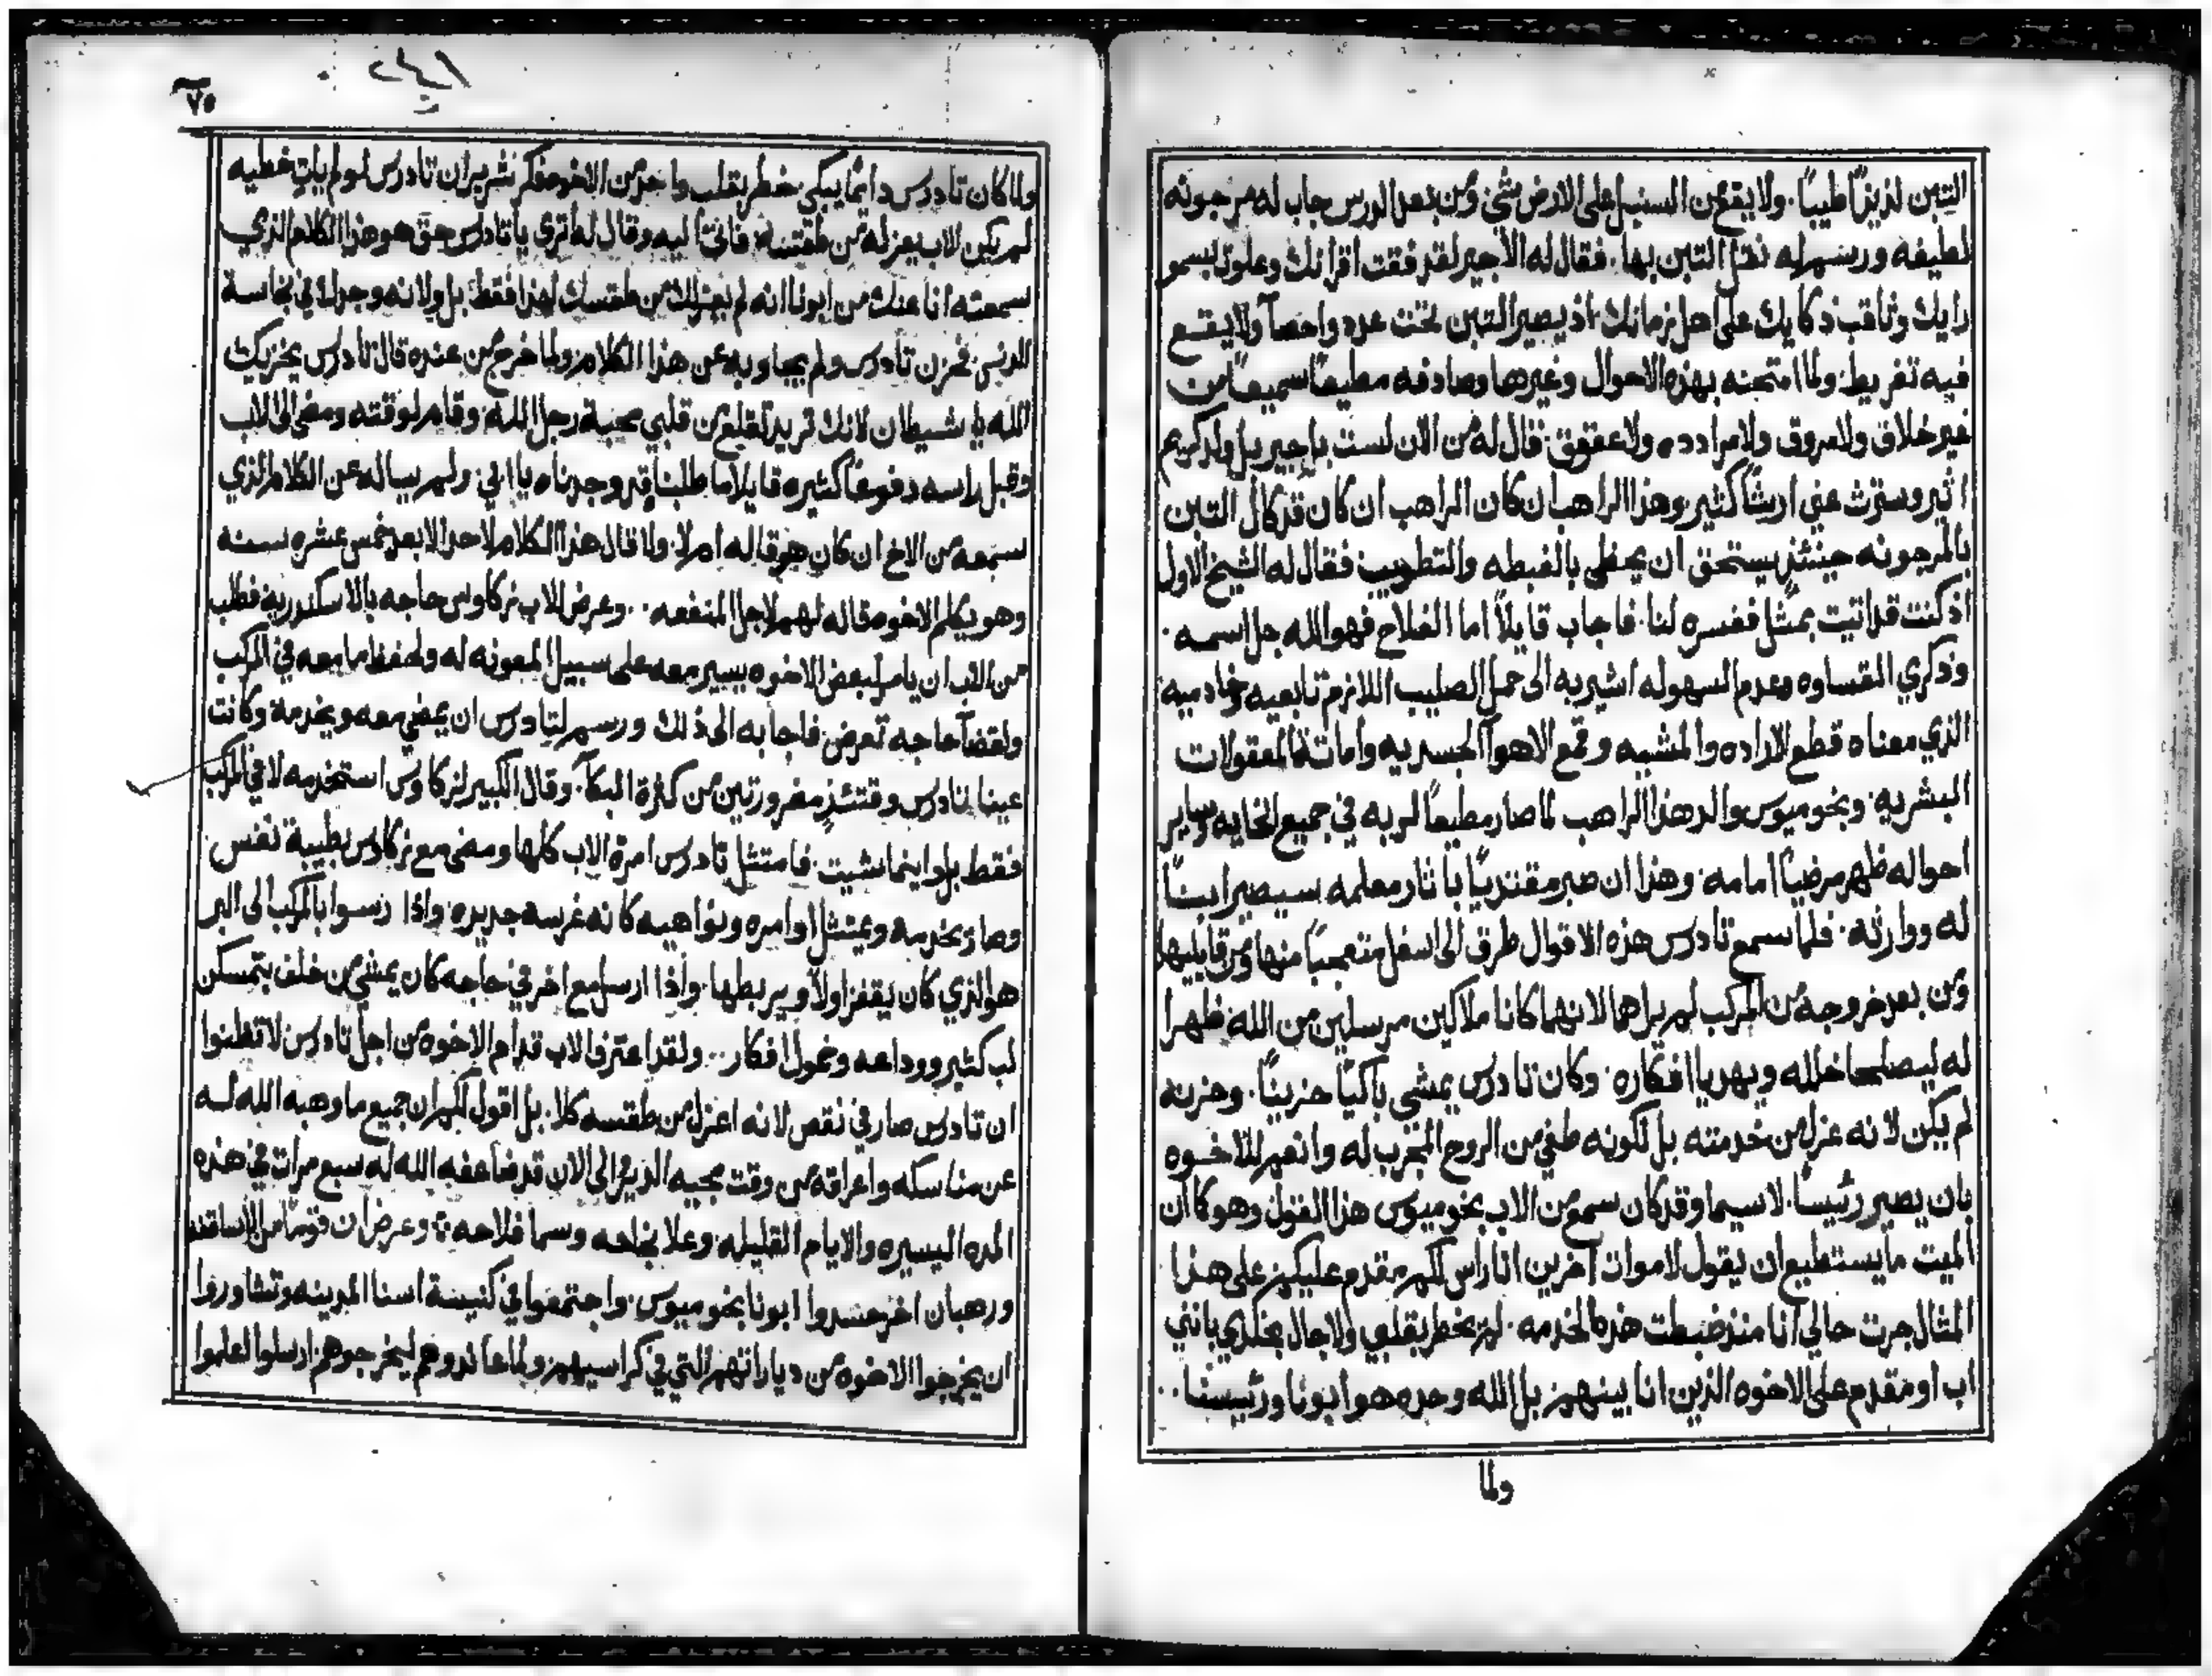 التبن لذيذًا طيبًا. ولا يبقى من السنبل على الارض شي ومن بعد الدرس جاب له مرجونه
لطيفه ورسم له نقل التبن بها. فقال له الاجير لقد فقت اقرانك وعلوت بسمو
رايك وثاقب ذكايك على اهل زمانك. اذ يصير التبن تحت عدد واحصآ ولا يقع
فيه تفريط. ولما امتحنه بهذه الاحوال وغيرها وصادفه مطيعًا سميعًا من
غير خلاق ولا مروق ولا مرادده ولا عقوق. قال له من الان لست باجير بل ولد كريم
اثير وسترث عني ارثًا كثير وهذا الراهب ان كان الراهب ان كان قد كال التبن
بالمرجونه حينئذٍ يستحق ان يحظى بالغبطه والتطويب فقال له الشيخ الاول
اذ كنت قد اتيت بمثل ففسره لنا. فاجاب قايلاً اما الفلاح فهو الله جل اسمه.
وذكري القساوه وعدم السهوله اشير به الى حمل الصليب اللازم تابعيه وخادميه
الذي معناه قطع الاراده والمشيه وقمع الاهوآ الجسديه واماتة المعقولات
البشريه. وبخوميوس والد هذا الراهب لما صار مطيعًا لربه في جميع وساير
احواله ظهر مرضيًا امامه. وهذا ان صبر مقتديًا باثار معلمه سيصير ابنًا
له ووارثه. فلما سمع تادرس هذه الاقوال طرق الى اسفل متعجبًا منها ومن قايليها
ومن بعد خروجه من المركب لم يراهما لانهما كانا ملاكين مرسلين من الله ظهرا
له ليصلحا خلله ويهديا افكاره. وكان تادرس يمشي باكيًا حزينًا. وحزنه
لم يكن لانه عزل من خدمته بل لكونه طغي من الروح المجرب له وانعم للاخوه
بان يصير رئيسًا. لا سيما وقد كان سمع من الاب بخوميوس هذا القول وهو كما ان
الميت ما يستطيع ان يقول لاموات اخرين انا راس لكم مقدم عليكم على هذا
المثال جرت حالي انا منذ ضبطت هذه الخدمه. لم يخطر بقلبي ولا جال بخلدي بانني
اب او مقدم على الاخوه الذين انا بينهم بل الله وحده هو ابونا ورئيسنا..
ولما
٧٥
ولما كان تادرس دائمًا يبكي خطر بقلب واحد من الاخوه فكر شرير ان تادرس لو لم يات خطيه
لم يكن الاب يعزله من طقسه فاتى اليه وقال له اترى يا تادرس حق هو هذا الكلام الذي
سمعته انا عنك من ابونا انه لم يعزلك من طقسك لهذا فقط بل ولانه وجدك في نجاسة
الدنس فحزن تادرس ولم يجاوبه عن هذا الكلام ولما خرج من عنده قال تادرس يخزيك
الله يا شيطان لانك تريد تقلع من قلبي محبة رجل الله. وقام لوقته ومضى الى الاب
وقبل راسه دفوعًا كثيره قايلا ما طلبنا قد وجدناه يا ابي. ولم يساله عن الكلام الذي
سمعه من الاخ ان كان هو قاله ام لا. ولا قال هذا الكلام لاحد الا بعد خمس عشره سنه
وهو يكلم الاخوه قاله لهم لاجل المنفعه.. وعرض للاب زكاوس حاجه بالاسكندريه فطلب
من الاب ان يامر لبعض الاخوه يسير معه على سبيل المعونه له ولحفظ ما معه في المركب
ولقضآ حاجه تعرض فاجابه الى ذلك ورسم لتادرس ان يمضي معه ويخدمه وكانت
عينا تادرس وقتئذٍ مغرورتين من كثرة البكآ. وقال الكبير لزكاوس استخدمه لا في المركب
فقط بل واينما شيت. فامتثل تادرس امرة الاب كلها ومضى مع زكاوس بطيبة نفس
وصار يخدمه ويمتثل اوامره ونواهيه كانه غرسه جديده. واذا رسوا بالمركب الى البر
هو الذي كان يقفز اولاً ويربطها. واذا ارسل مع اخر في حاجه كان يمشي من خلف بتمسكن
لب كثير ووداعه وخمول افكار.. ولقد اعترف الاب قدام الاخوه من اجل تادرس لا تظنوا
ان تادرس صار في نقص لانه اعتزل من طقسه كلا. بل اقول لكم ان جميع ما وهبه الله له
عن مناسكه واعراقه من وقت مجيه الدير الى الان قد ضاعفه الله له سبع مرات في هذه
المده اليسيره والايام القليله. وعلا نجاحه وسما فلاحه. وعرض ان قومًا من الاساقفه
ورهبان اخر حسدوا ابونا بخوميوس. واجتمعوا في كنيسة اسنا المدينه وتشاوروا
ان يخرجوا الاخوه من دياراتهم التي في كراسيهم ولما عاندوهم ليخرجوهم ارسلوا